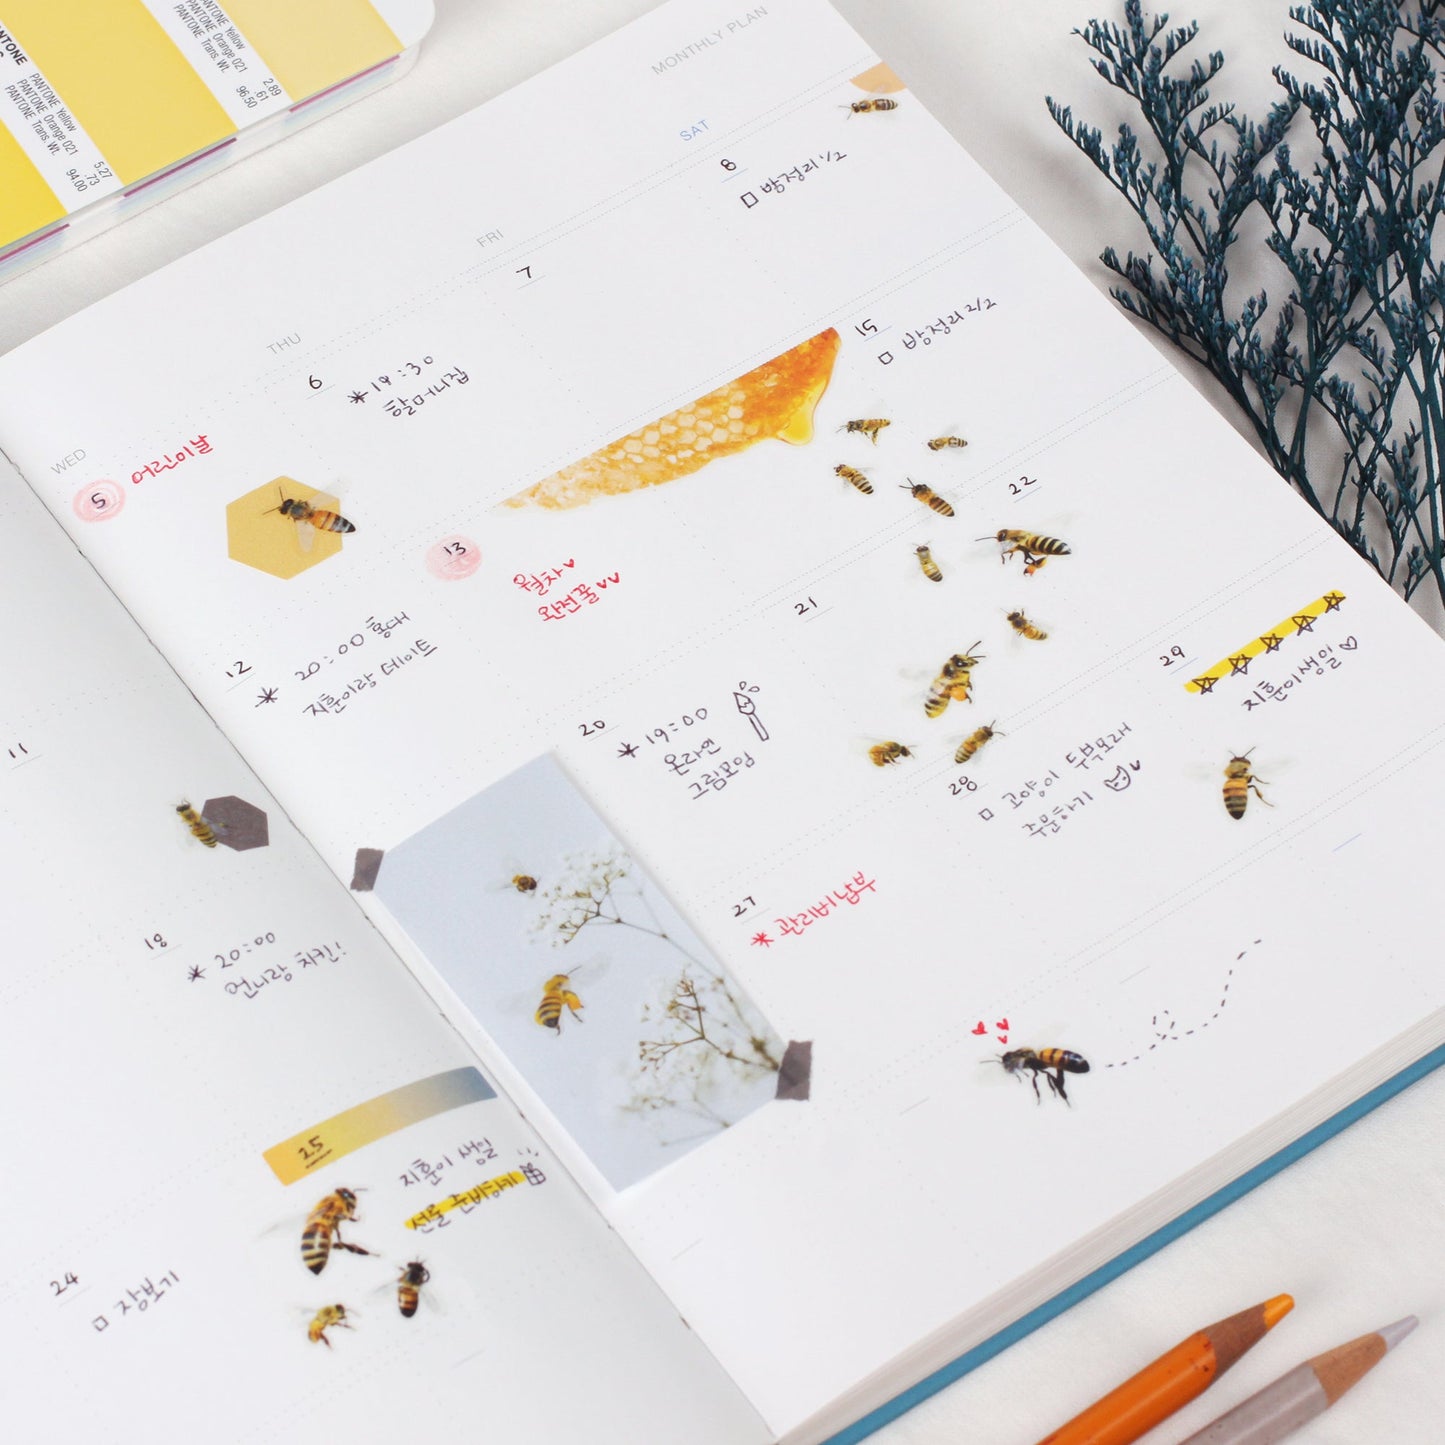 PANTONE
PANTONE Yellow 5.27
PANTONE Orange 021 .73
PANTONE Trans. Wt. 94.00
PANTONE Yellow 2.89
PANTONE Orange 021 .61
PANTONE Trans. Wt. 96.50
MONTHLY PLAN
WED
THU
FRI
SAT
5 어린이날
6
* 19:30
할머니집
7
8
방정리 1/2
11
12
* 20:00 홍대
지훈이랑 데이트
13
월차♥
완전꿀♥♥
15
방정리 2/2
18
* 20:00
언니랑 치킨!
20
* 19:00
온라인
그림모임
21
22
24
장보기
25
지훈이 생일
선물 준비하기
27
* 관리비 납부
28
고양이 두부모래
주문하기
29
☆☆☆☆☆
지훈이생일♡